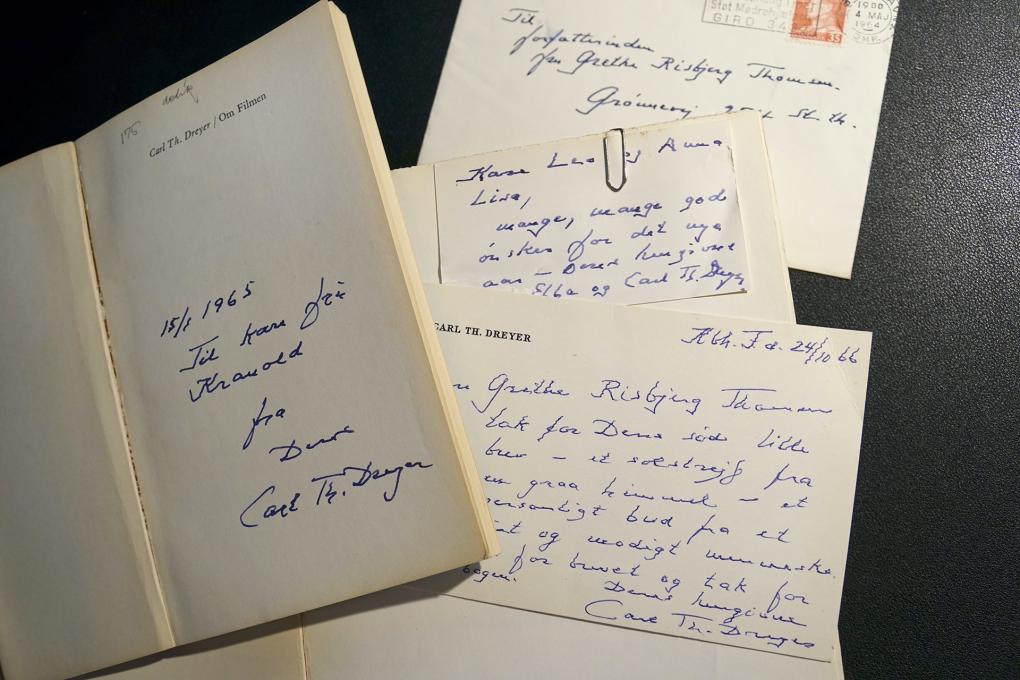 175
Carl Th. Dreyer / Om Filmen
15/1 1965
Til kære frk
Kranold
fra
Deres
Carl Th. Dreyer
Støt Mødrehj
GIRO 34
1900
4 MAJ
1964
35
Til
forfatterinden
fru Grethe Risbjerg Thomsen.
Grønnevej St. th.
Kære Leo og Anna
Lisa,
mange, mange gode
ønsker for det nye
aar – Deres hengivne
Ebba og Carl Th. Dreyer
CARL TH. DREYER
Kbh. F. d. 24/10 66
Grethe Risbjerg Thomsen
tak for Deres søde lille
brev – et solstrejf fra
graa himmel – et
personligt bud fra et
og modigt menneske.
for brevet og tak for
bogen.
Deres hengivne
Carl Th. Dreyer